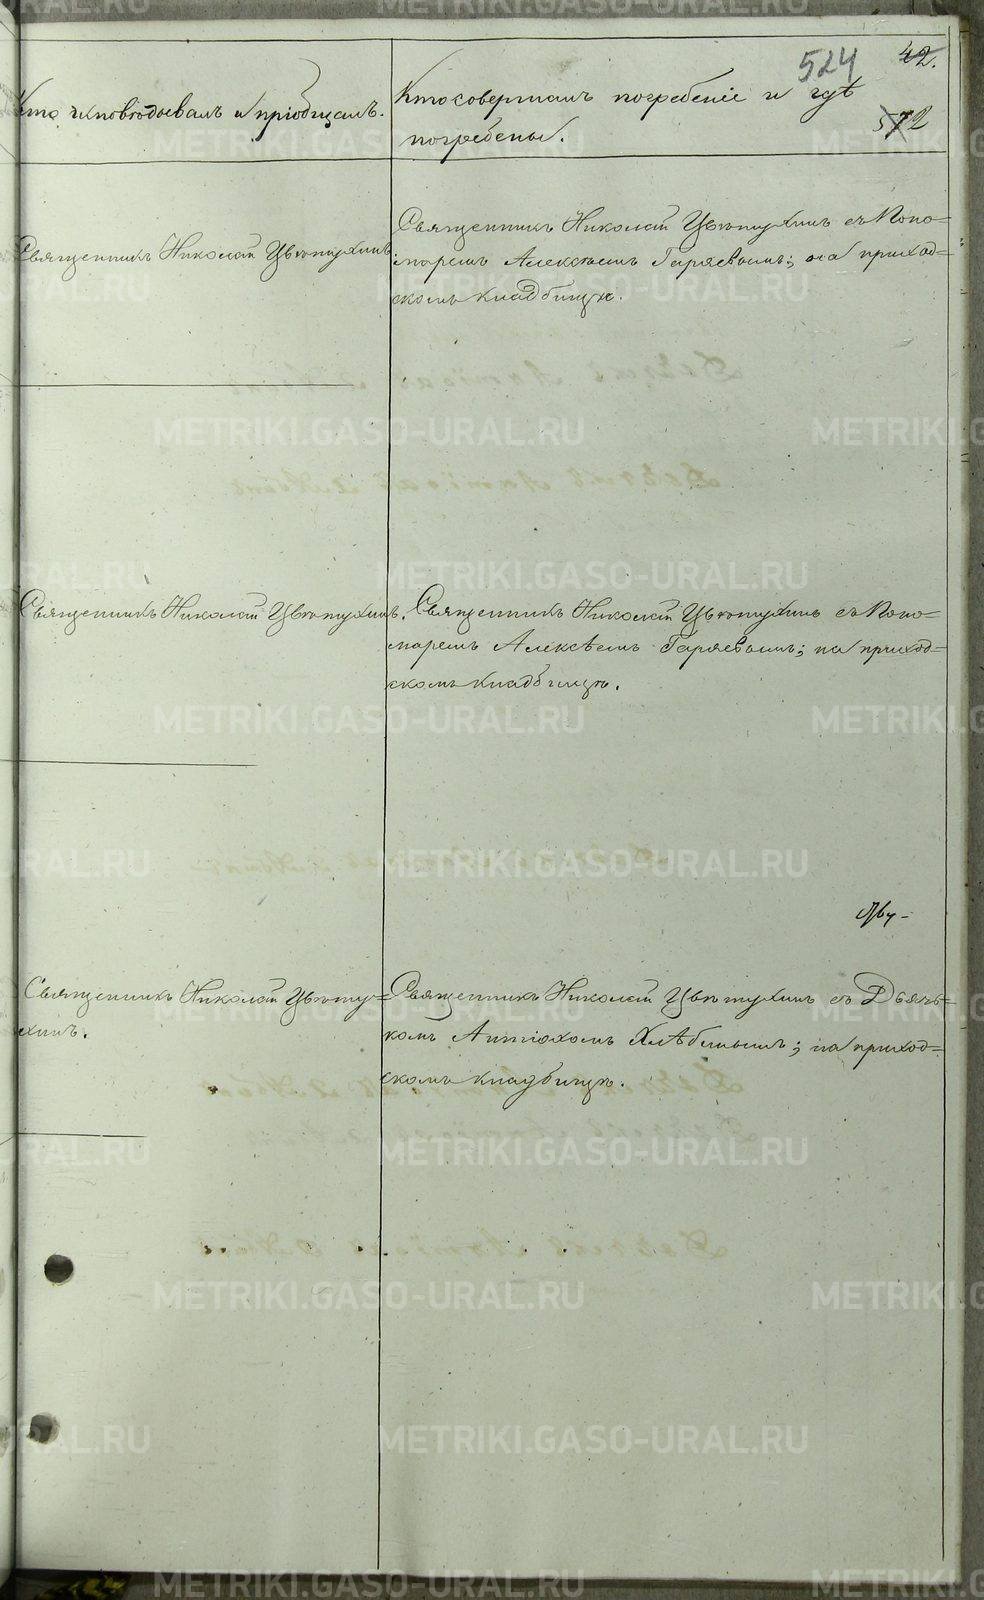 524
42.
572
Кто исповѣдывалъ и пріобщалъ.
Кто совершалъ погребеніе и гдѣ
погребены.
Священникъ Николай Цвѣтухинъ
Священникъ Николай Цвѣтухинъ съ Поно=
маремъ Алексѣемъ Гаряевымъ; на приход=
скомъ кладбищѣ.
Священникъ Николай Цвѣтухинъ.
Священникъ Николай Цвѣтухинъ съ Поно=
маремъ Алексѣемъ Гаряевымъ; на приход=
скомъ кладбищѣ.
Священникъ Николай Цвѣту=
хинъ.
Священникъ Николай Цвѣтухинъ съ Дьячь=
комъ Антіохомъ Хлѣбинымъ; на приход=
скомъ кладбищѣ.
METRIKI.GASO-URAL.RU